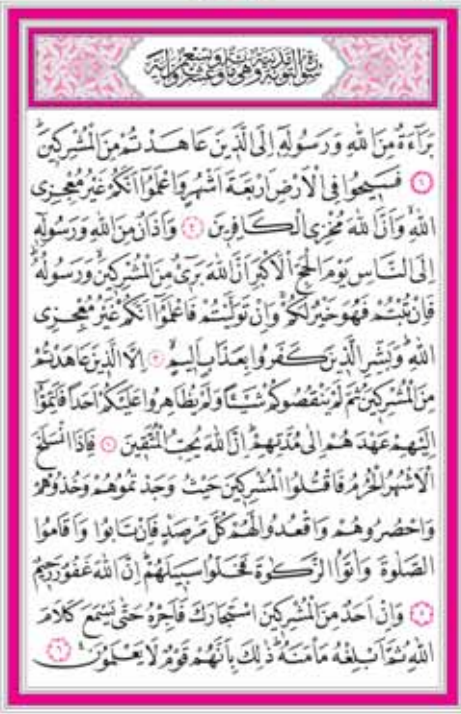 سورة التوبة مدنية وهي مائة وتسع وعشرون آية
بَرَٓاءَةٌ مِنَ اللّٰهِ وَرَسُولِهِٓ اِلَى الَّذٖينَ عَاهَدْتُمْ مِنَ الْمُشْرِكٖينَۜ
﴿١﴾ فَسٖيحُوا فِي الْاَرْضِ اَرْبَعَةَ اَشْهُرٍ وَاعْلَمُٓوا اَنَّكُمْ غَيْرُ مُعْجِزِي
اللّٰهِۙ وَاَنَّ اللّٰهَ مُخْزِي الْكَافِرٖينَ ﴿٢﴾ وَاَذَانٌ مِنَ اللّٰهِ وَرَسُولِهِٓ
اِلَى النَّاسِ يَوْمَ الْحَجِّ الْاَكْبَرِ اَنَّ اللّٰهَ بَرٖٓيءٌ مِنَ الْمُشْرِكٖينَ وَرَسُولُهُۜ
فَاِنْ تُبْتُمْ فَهُوَ خَيْرٌ لَكُمْۚ وَاِنْ تَوَلَّيْتُمْ فَاعْلَمُٓوا اَنَّكُمْ غَيْرُ مُعْجِزِي
اللّٰهِۜ وَبَشِّرِ الَّذٖينَ كَفَرُوا بِعَذَابٍ اَلٖيمٍۙ ﴿٣﴾ اِلَّا الَّذٖينَ عَاهَدْتُمْ
مِنَ الْمُشْرِكٖينَ ثُمَّ لَمْ يَنْقُصُوكُمْ شَيْـًٔا وَلَمْ يُظَاهِرُوا عَلَيْكُمْ اَحَدًا فَاَتِمُّٓوا
اِلَيْهِمْ عَهْدَهُمْ اِلٰى مُدَّتِهِمْۜ اِنَّ اللّٰهَ يُحِبُّ الْمُتَّقٖينَ ﴿٤﴾ فَاِذَا انْسَلَخَ
الْاَشْهُرُ الْحُرُمُ فَاقْتُلُوا الْمُشْرِكٖينَ حَيْثُ وَجَدْتُمُوهُمْ وَخُذُوهُمْ
وَاحْصُرُوهُمْ وَاقْعُدُوا لَهُمْ كُلَّ مَرْصَدٍۚ فَاِنْ تَابُوا وَاَقَامُوا
الصَّلٰوةَ وَاٰتَوُا الزَّكٰوةَ فَخَلُّوا سَبٖيلَهُمْۜ اِنَّ اللّٰهَ غَفُورٌ رَحٖيمٌ
﴿٥﴾ وَاِنْ اَحَدٌ مِنَ الْمُشْرِكٖينَ اسْتَجَارَكَ فَاَجِرْهُ حَتّٰى يَسْمَعَ كَلَامَ
اللّٰهِ ثُمَّ اَبْلِغْهُ مَأْمَنَهُۜ ذٰلِكَ بِاَنَّهُمْ قَوْمٌ لَا يَعْلَمُونَ۟ ﴿٦﴾